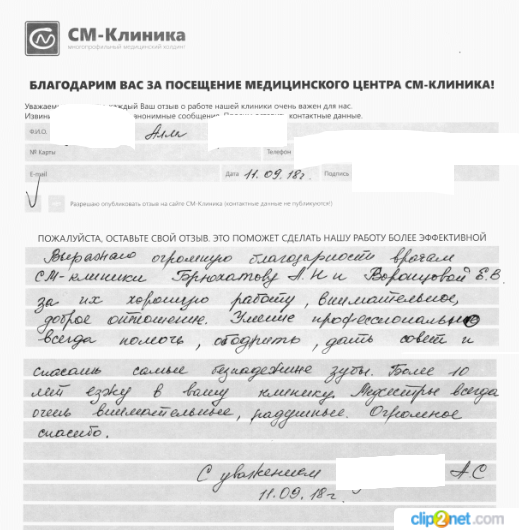 СМ-Клиника
многопрофильный медицинский холдинг
БЛАГОДАРИМ ВАС ЗА ПОСЕЩЕНИЕ МЕДИЦИНСКОГО ЦЕНТРА СМ-КЛИНИКА!
каждый Ваш отзыв о работе нашей клиники очень важен для нас.
анонимные сообщения. контактные данные.
Ф.И.О.
№ Карты Телефон
E-mail Дата 11.09.18г. Подпись
Разрешаю опубликовать отзыв на сайте СМ-Клиника (контактные данные не публикуются)
ПОЖАЛУЙСТА, ОСТАВЬТЕ СВОЙ ОТЗЫВ. ЭТО ПОМОЖЕТ СДЕЛАТЬ НАШУ РАБОТУ БОЛЕЕ ЭФФЕКТИВНОЙ
Выражаю огромную благодарность врачам
СМ-клиники А.Н и Воронцовой Е.В.
за их хорошую работу, внимательное,
доброе отношение. Умение профессионально
всегда помочь, ободрить, дать совет и
спасать самые безнадежные зубы. Более 10
лет езжу в вашу клинику. Медсестры всегда
очень внимательные, радушные. Огромное
спасибо.
С уважением АС
11.09.18г.
clip2net.com